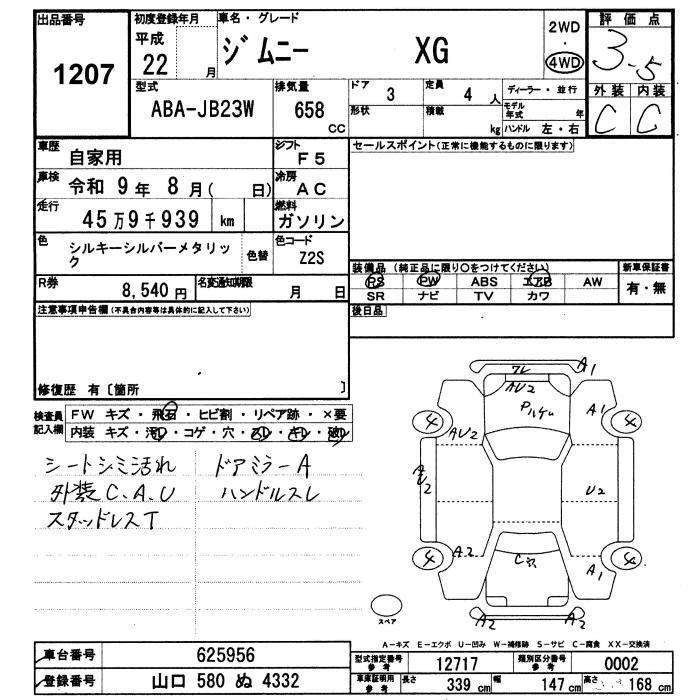 出品番号
1207
初度登録年月
平成
22 月
車名・グレード
ジムニー XG
2WD
・
4WD
評価点
3.5
外装 内装
C C
型式
ABA-JB23W
排気量
658
CC
ドア
3
定員
4 人
形状
積載
kg
ディーラー・並行
モデル
年式 年
ハンドル 左・右
車歴
自家用
シフト
F5
車検
令和 9年 8月( 日)
冷房
AC
走行
45万9千939 km
燃料
ガソリン
色
シルキーシルバーメタリッ
ク
色替
色コード
Z2S
R券
8,540 円
名変通知期限
月 日
セールスポイント(正常に機能するものに限ります)
装備品 (純正品に限り○をつけてください)
PS PW ABS エアB AW
SR ナビ TV カワ
新車保証書
有・無
後日品
注意事項申告欄(不具合内容等は具体的に記入して下さい)
修復歴 有〔箇所 〕
検査員
記入欄
FW キズ・飛石・ヒビ割・リペア跡・×要
内装 キズ・汚れ・コゲ・穴・
シートシミ汚れ
外装C.A.U
スタッドレスT
ドアミラーA
ハンドルスレ
A1
AU2
A1
4
4
AU2
AU2
U2
4
4
A2
A1
A2
A2
スペア
A-キズ E-エクボ U-凹み W-補修跡 S-サビ C-腐食 XX-交換済
車台番号
625956
登録番号
山口 580 ぬ 4332
型式指定番号
参考
12717
類別区分番号
参考
0002
車庫証明用
参考
長さ 339 cm
幅 147 cm
高さ 168 cm